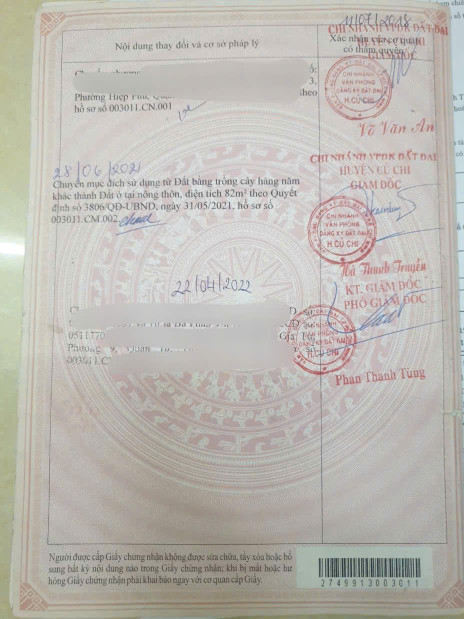 Nội dung thay đổi và cơ sở pháp lý
Xác nhận của cơ quan
có thẩm quyền
11/07/2018
CHI NHÁNH VPĐK ĐẤT ĐAI
GIÁM ĐỐC
Phường Hiệp
hồ sơ số 003011.CN.001
CHI NHÁNH
VĂN PHÒNG
ĐĂNG KÝ ĐẤT ĐAI
H.CỦ CHI
Võ Văn Ân
28/06/2021
Chuyển mục đích sử dụng từ Đất bằng trồng cây hàng năm
khác thành Đất ở tại nông thôn, diện tích 82m² theo Quyết
định số 3806/QĐ-UBND, ngày 31/05/2021, hồ sơ số
003011.CM.002
CHI NHÁNH VPĐK ĐẤT ĐAI
HUYỆN CỦ CHI
GIÁM ĐỐC
CHI NHÁNH
VĂN PHÒNG
ĐĂNG KÝ ĐẤT ĐAI
H.CỦ CHI
Hà Thanh Truyền
22/04/2022
003011.C
KT. GIÁM ĐỐC
PHÓ GIÁM ĐỐC
CHI NHÁNH
VĂN PHÒNG
ĐĂNG KÝ ĐẤT ĐAI
H.CỦ CHI
Phan Thanh Tùng
Người được cấp Giấy chứng nhận không được sửa chữa, tẩy xóa hoặc bổ
sung bất kỳ nội dung nào trong Giấy chứng nhận; khi bị mất hoặc hư
hỏng Giấy chứng nhận phải khai báo ngay với cơ quan cấp Giấy.
2749913003011